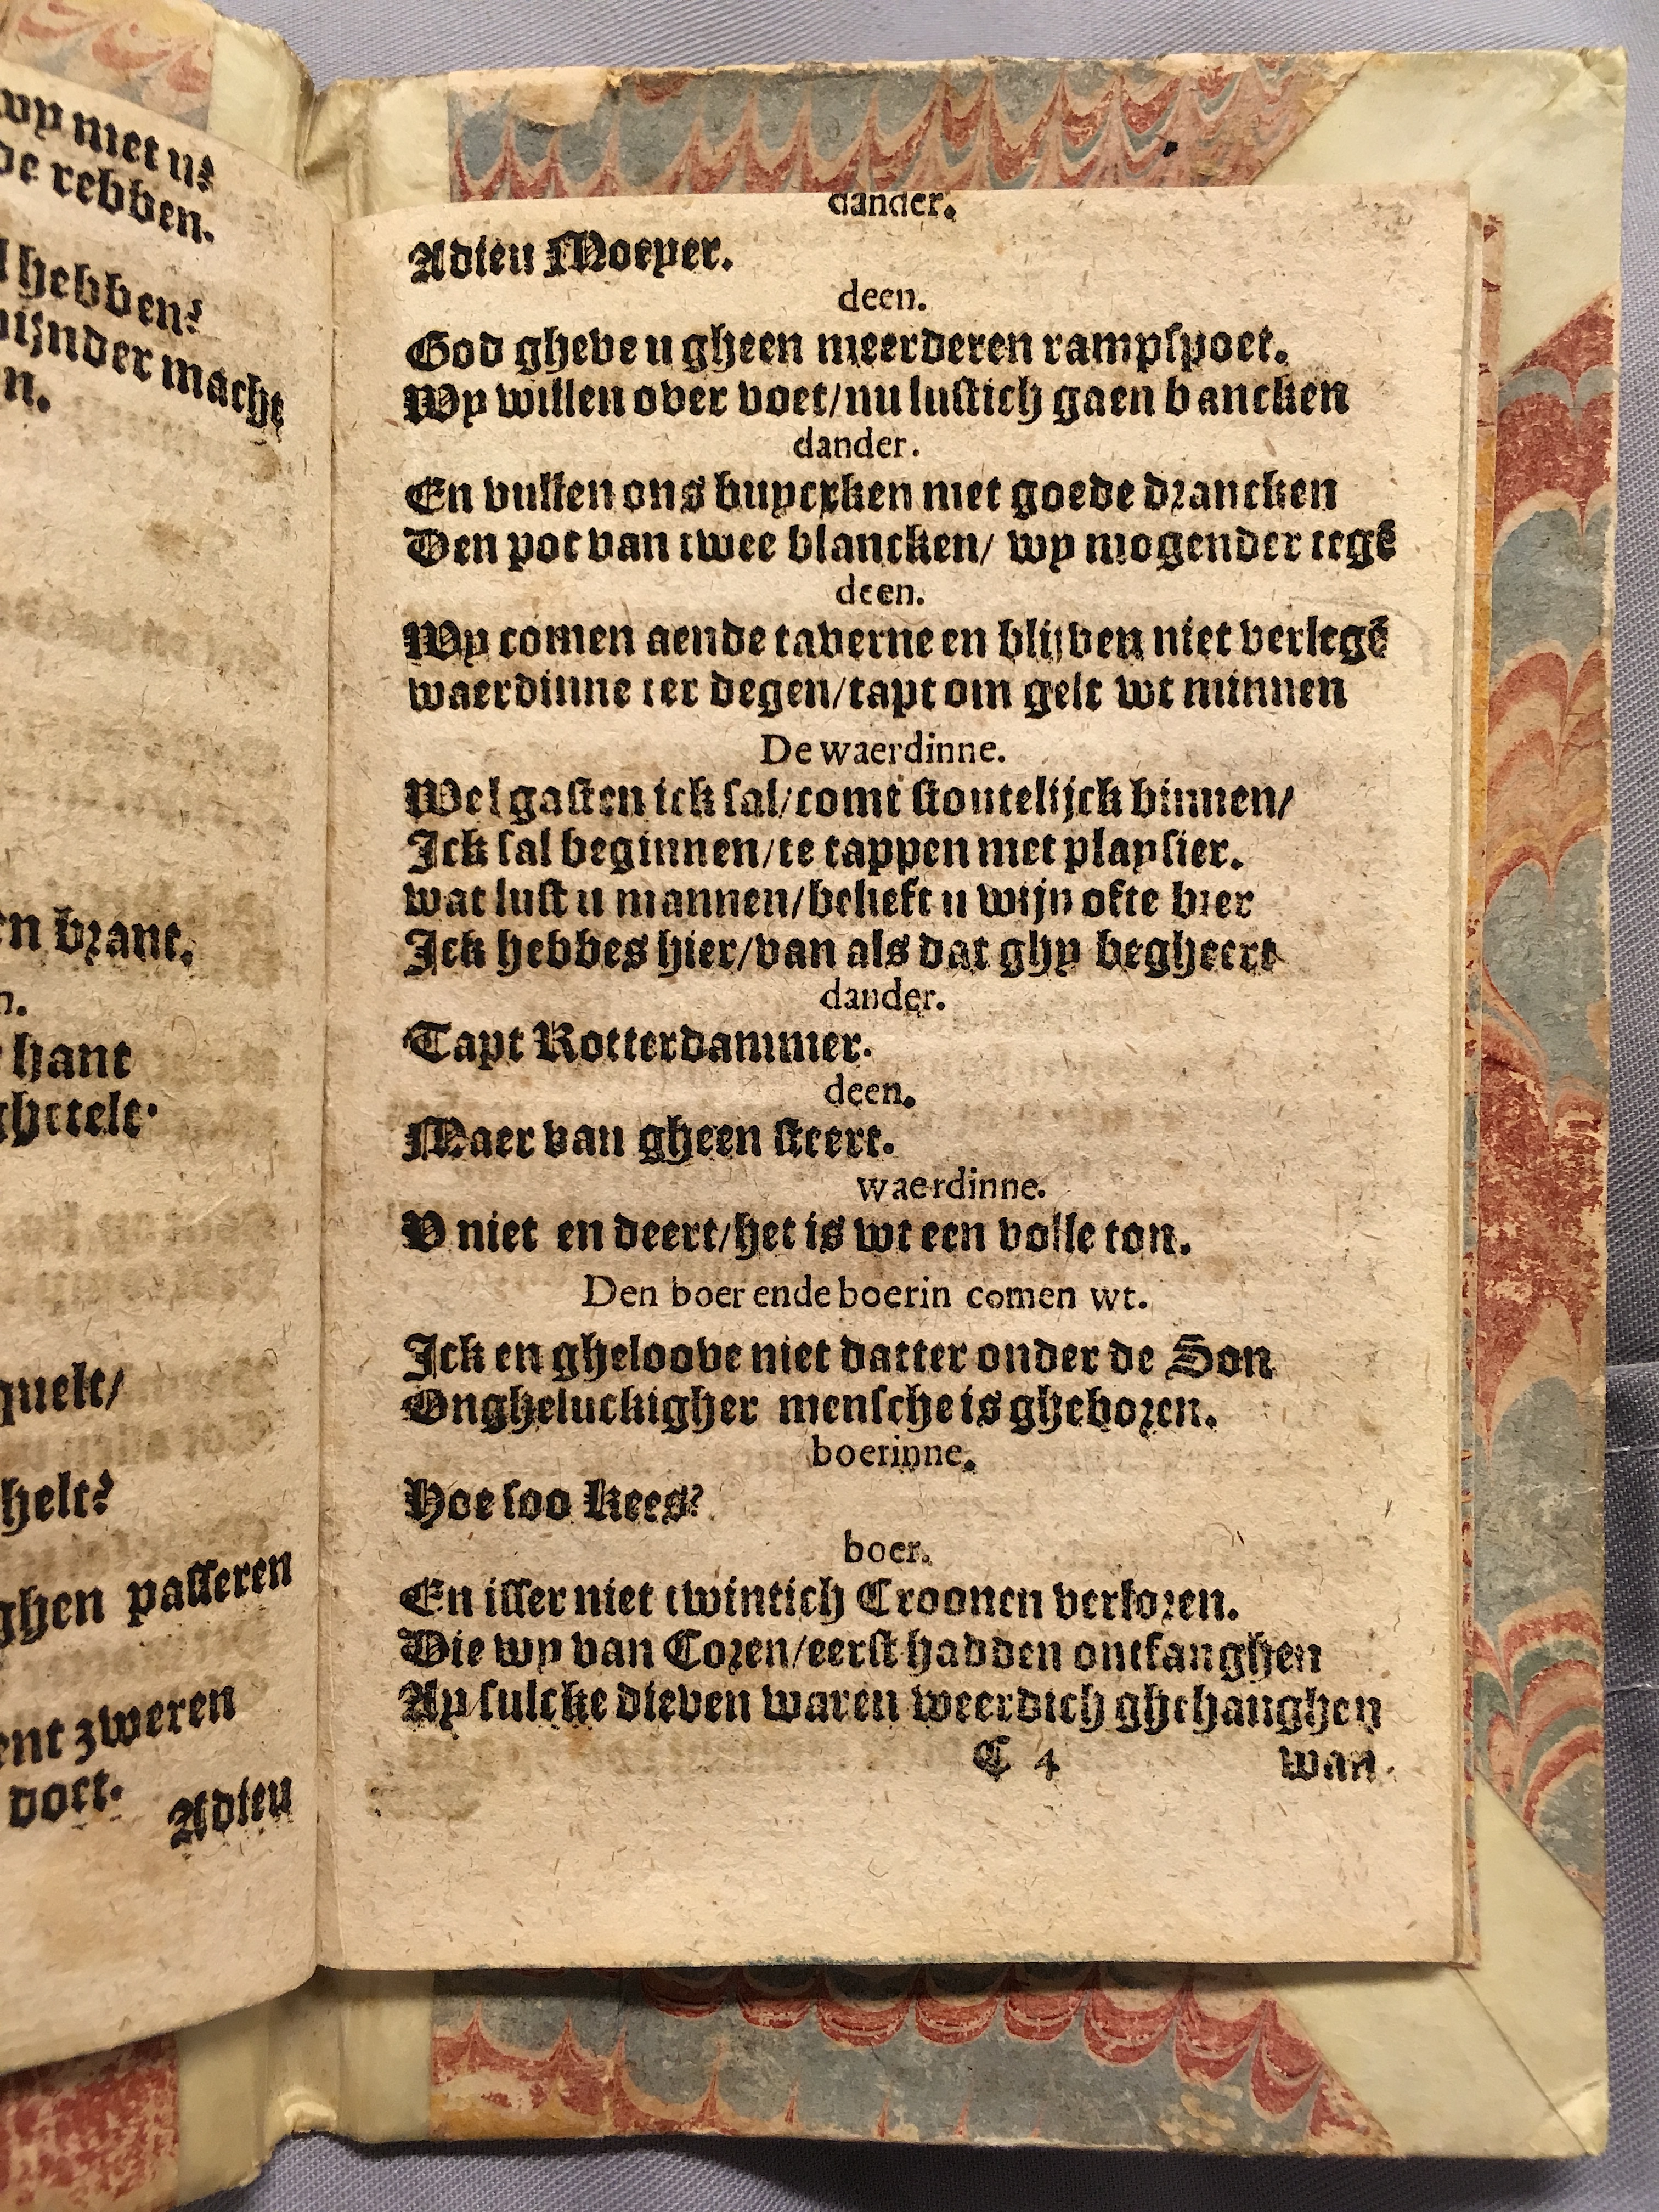 wy met u?
de rebben.
hebben?
macht
n.
en brant.
n.
hant
quelt/
helt?
ghen passeren
ent zweren
doet.
Adieu
dander.
Adieu Moeyer.
deen.
God gheve u gheen meerderen rampspoet.
Wy willen over voet/nu lustich gaen bancken
dander.
En vullen ons buycxken met goede drancken
Den pot van twee blancken/ wy mogender tegē
deen.
Wy comen aende taverne en blijven niet verlegē
waerdinne ter degen/tapt om gelt wt minnen
De waerdinne.
Wel gasten ick sal/comt stoutelijck binnen/
Ick sal beginnen/te tappen met playsier.
wat lust u mannen/belieft u wijn ofte bier
Ick hebbes hier/van als dat ghy begheert
dander.
Tapt Rotterdammer.
deen.
Maer van gheen steert.
waerdinne.
V niet en deert/het is wt een volle ton.
Den boer ende boerin comen wt.
Ick en gheloove niet datter onder de Son
Ongheluckigher mensche is gheboren.
boerinne.
Hoe soo Kees?
boer.
En isser niet twintich Croonen verloren.
Die wy van Coren/eerst hadden ontfanghen
Ay sulcke dieven waren weerdich ghehanghen
C 4 wan